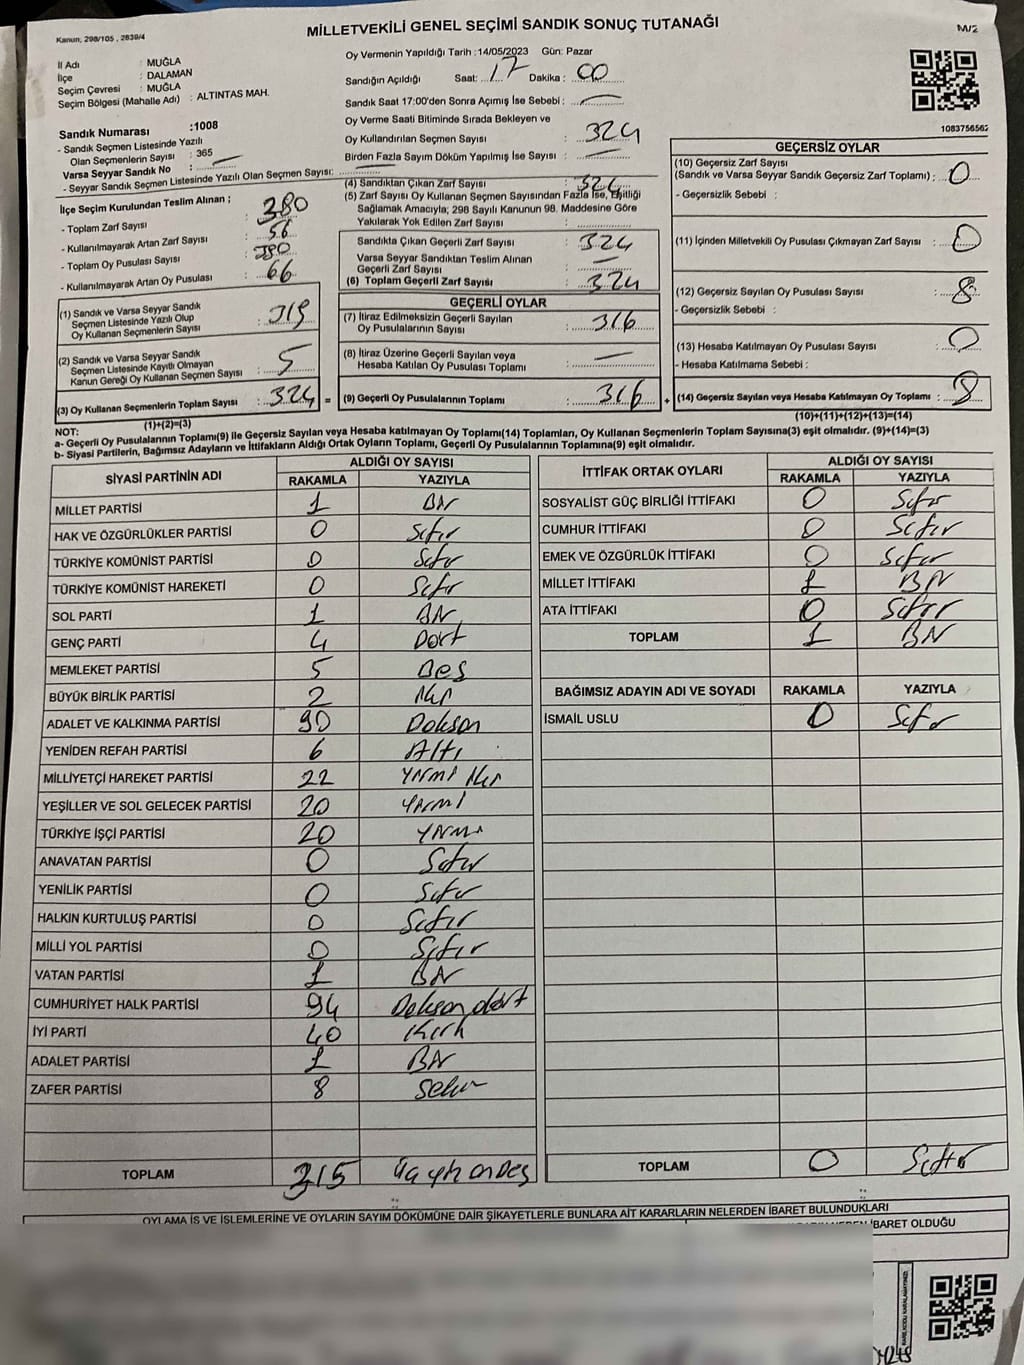 Kanun, 298/105 , 2839/4
MİLLETVEKİLİ GENEL SEÇİMİ SANDIK SONUÇ TUTANAĞI
M/2
İl Adı : MUĞLA
İlçe : DALAMAN
Seçim Çevresi : MUĞLA
Seçim Bölgesi (Mahalle Adı) : ALTINTAS MAH.
Oy Vermenin Yapıldığı Tarih :14/05/2023 Gün: Pazar
Sandığın Açıldığı Saat: 17 Dakika : 00
Sandık Saat 17:00'den Sonra Açımış İse Sebebi : —
Oy Verme Saati Bitiminde Sırada Bekleyen ve
Oy Kullandırılan Seçmen Sayısı : 324
Birden Fazla Sayım Döküm Yapılmış İse Sayısı : —
1083756562
Sandık Numarası :1008
- Sandık Seçmen Listesinde Yazılı
Olan Seçmenlerin Sayısı : 365
Varsa Seyyar Sandık No : —
- Seyyar Sandık Seçmen Listesinde Yazılı Olan Seçmen Sayısı:
İlçe Seçim Kurulundan Teslim Alınan ;
- Toplam Zarf Sayısı : 380
- Kullanılmayarak Artan Zarf Sayısı : 56
- Toplam Oy Pusulası Sayısı : 380
- Kullanılmayarak Artan Oy Pusulası : 66
(1) Sandık ve Varsa Seyyar Sandık
Seçmen Listesinde Yazılı Olup
Oy Kullanan Seçmenlerin Sayısı : 319
(2) Sandık ve Varsa Seyyar Sandık
Seçmen Listesinde Kayıtlı Olmayan
Kanun Gereği Oy Kullanan Seçmen Sayısı : 5
(3) Oy Kullanan Seçmenlerin Toplam Sayısı : 324 =
(1)+(2)=(3)
(4) Sandıktan Çıkan Zarf Sayısı : 324
(5) Zarf Sayısı Oy Kullanan Seçmen Sayısından Fazla İse, Eşitliği
Sağlamak Amacıyla; 298 Sayılı Kanunun 98. Maddesine Göre
Yakılarak Yok Edilen Zarf Sayısı :
Sandıkta Çıkan Geçerli Zarf Sayısı : 324
Varsa Seyyar Sandıktan Teslim Alınan
Geçerli Zarf Sayısı : —
(6) Toplam Geçerli Zarf Sayısı : 324
GEÇERLİ OYLAR
(7) İtiraz Edilmeksizin Geçerli Sayılan
Oy Pusulalarının Sayısı : 316
(8) İtiraz Üzerine Geçerli Sayılan veya
Hesaba Katılan Oy Pusulası Toplamı : —
(9) Geçerli Oy Pusulalarının Toplamı : 316 +
GEÇERSİZ OYLAR
(10) Geçersiz Zarf Sayısı
(Sandık ve Varsa Seyyar Sandık Geçersiz Zarf Toplamı) : 0
- Geçersizlik Sebebi :
(11) İçinden Milletvekili Oy Pusulası Çıkmayan Zarf Sayısı : 0
(12) Geçersiz Sayılan Oy Pusulası Sayısı : 8
- Geçersizlik Sebebi :
(13) Hesaba Katılmayan Oy Pusulası Sayısı : 0
- Hesaba Katılmama Sebebi :
(14) Geçersiz Sayılan veya Hesaba Katılmayan Oy Toplamı : 8
(10)+(11)+(12)+(13)=(14)
NOT:
a- Geçerli Oy Pusulalarının Toplamı(9) ile Geçersiz Sayılan veya Hesaba katılmayan Oy Toplamı(14) Toplamları, Oy Kullanan Seçmenlerin Toplam Sayısına(3) eşit olmalıdır. (9)+(14)=(3)
b- Siyasi Partilerin, Bağımsız Adayların ve İttifakların Aldığı Ortak Oyların Toplamı, Geçerli Oy Pusulalarının Toplamına(9) eşit olmalıdır.
SİYASİ PARTİNİN ADI ALDIĞI OY SAYISI
RAKAMLA YAZIYLA
MİLLET PARTİSİ 1 BİR
HAK VE ÖZGÜRLÜKLER PARTİSİ 0 Sıfır
TÜRKİYE KOMÜNİST PARTİSİ 0 Sıfır
TÜRKİYE KOMÜNİST HAREKETİ 0 Sıfır
SOL PARTİ 1 BİR
GENÇ PARTİ 4 Dört
MEMLEKET PARTİSİ 5 Beş
BÜYÜK BİRLİK PARTİSİ 2 İki
ADALET VE KALKINMA PARTİSİ 90 Doksan
YENİDEN REFAH PARTİSİ 6 Altı
MİLLİYETÇİ HAREKET PARTİSİ 22 Yirmi İki
YEŞİLLER VE SOL GELECEK PARTİSİ 20 Yirmi
TÜRKİYE İŞÇİ PARTİSİ 20 Yirmi
ANAVATAN PARTİSİ 0 Sıfır
YENİLİK PARTİSİ 0 Sıfır
HALKIN KURTULUŞ PARTİSİ 0 Sıfır
MİLLİ YOL PARTİSİ 0 Sıfır
VATAN PARTİSİ 1 BİR
CUMHURİYET HALK PARTİSİ 94 Doksan dört
İYİ PARTİ 40 Kırk
ADALET PARTİSİ 1 BİR
ZAFER PARTİSİ 8 Sekiz
TOPLAM 315 üçyüz onbeş
İTTİFAK ORTAK OYLARI ALDIĞI OY SAYISI
RAKAMLA YAZIYLA
SOSYALİST GÜÇ BİRLİĞİ İTTİFAKI 0 Sıfır
CUMHUR İTTİFAKI 0 Sıfır
EMEK VE ÖZGÜRLÜK İTTİFAKI 0 Sıfır
MİLLET İTTİFAKI 1 BİR
ATA İTTİFAKI 0 Sıfır
TOPLAM 1 BİR
BAĞIMSIZ ADAYIN ADI VE SOYADI RAKAMLA YAZIYLA
İSMAİL USLU 0 Sıfır
TOPLAM 0 Sıfır
OYLAMA İŞ VE İŞLEMLERİNE VE OYLARIN SAYIM DÖKÜMÜNE DAİR ŞİKAYETLERLE BUNLARA AİT KARARLARIN NELERDEN İBARET BULUNDUKLARI
İBARET OLDUĞU